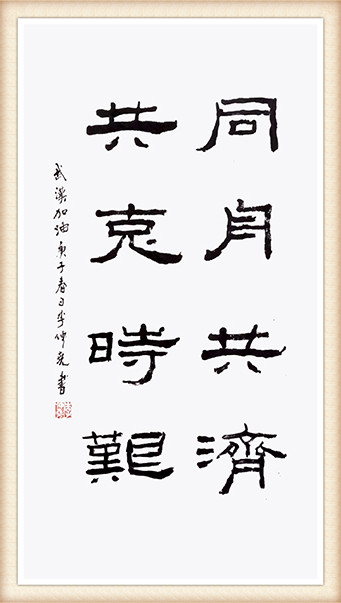 同舟共濟
共克時艱
武漢加油庚子春日李仲書